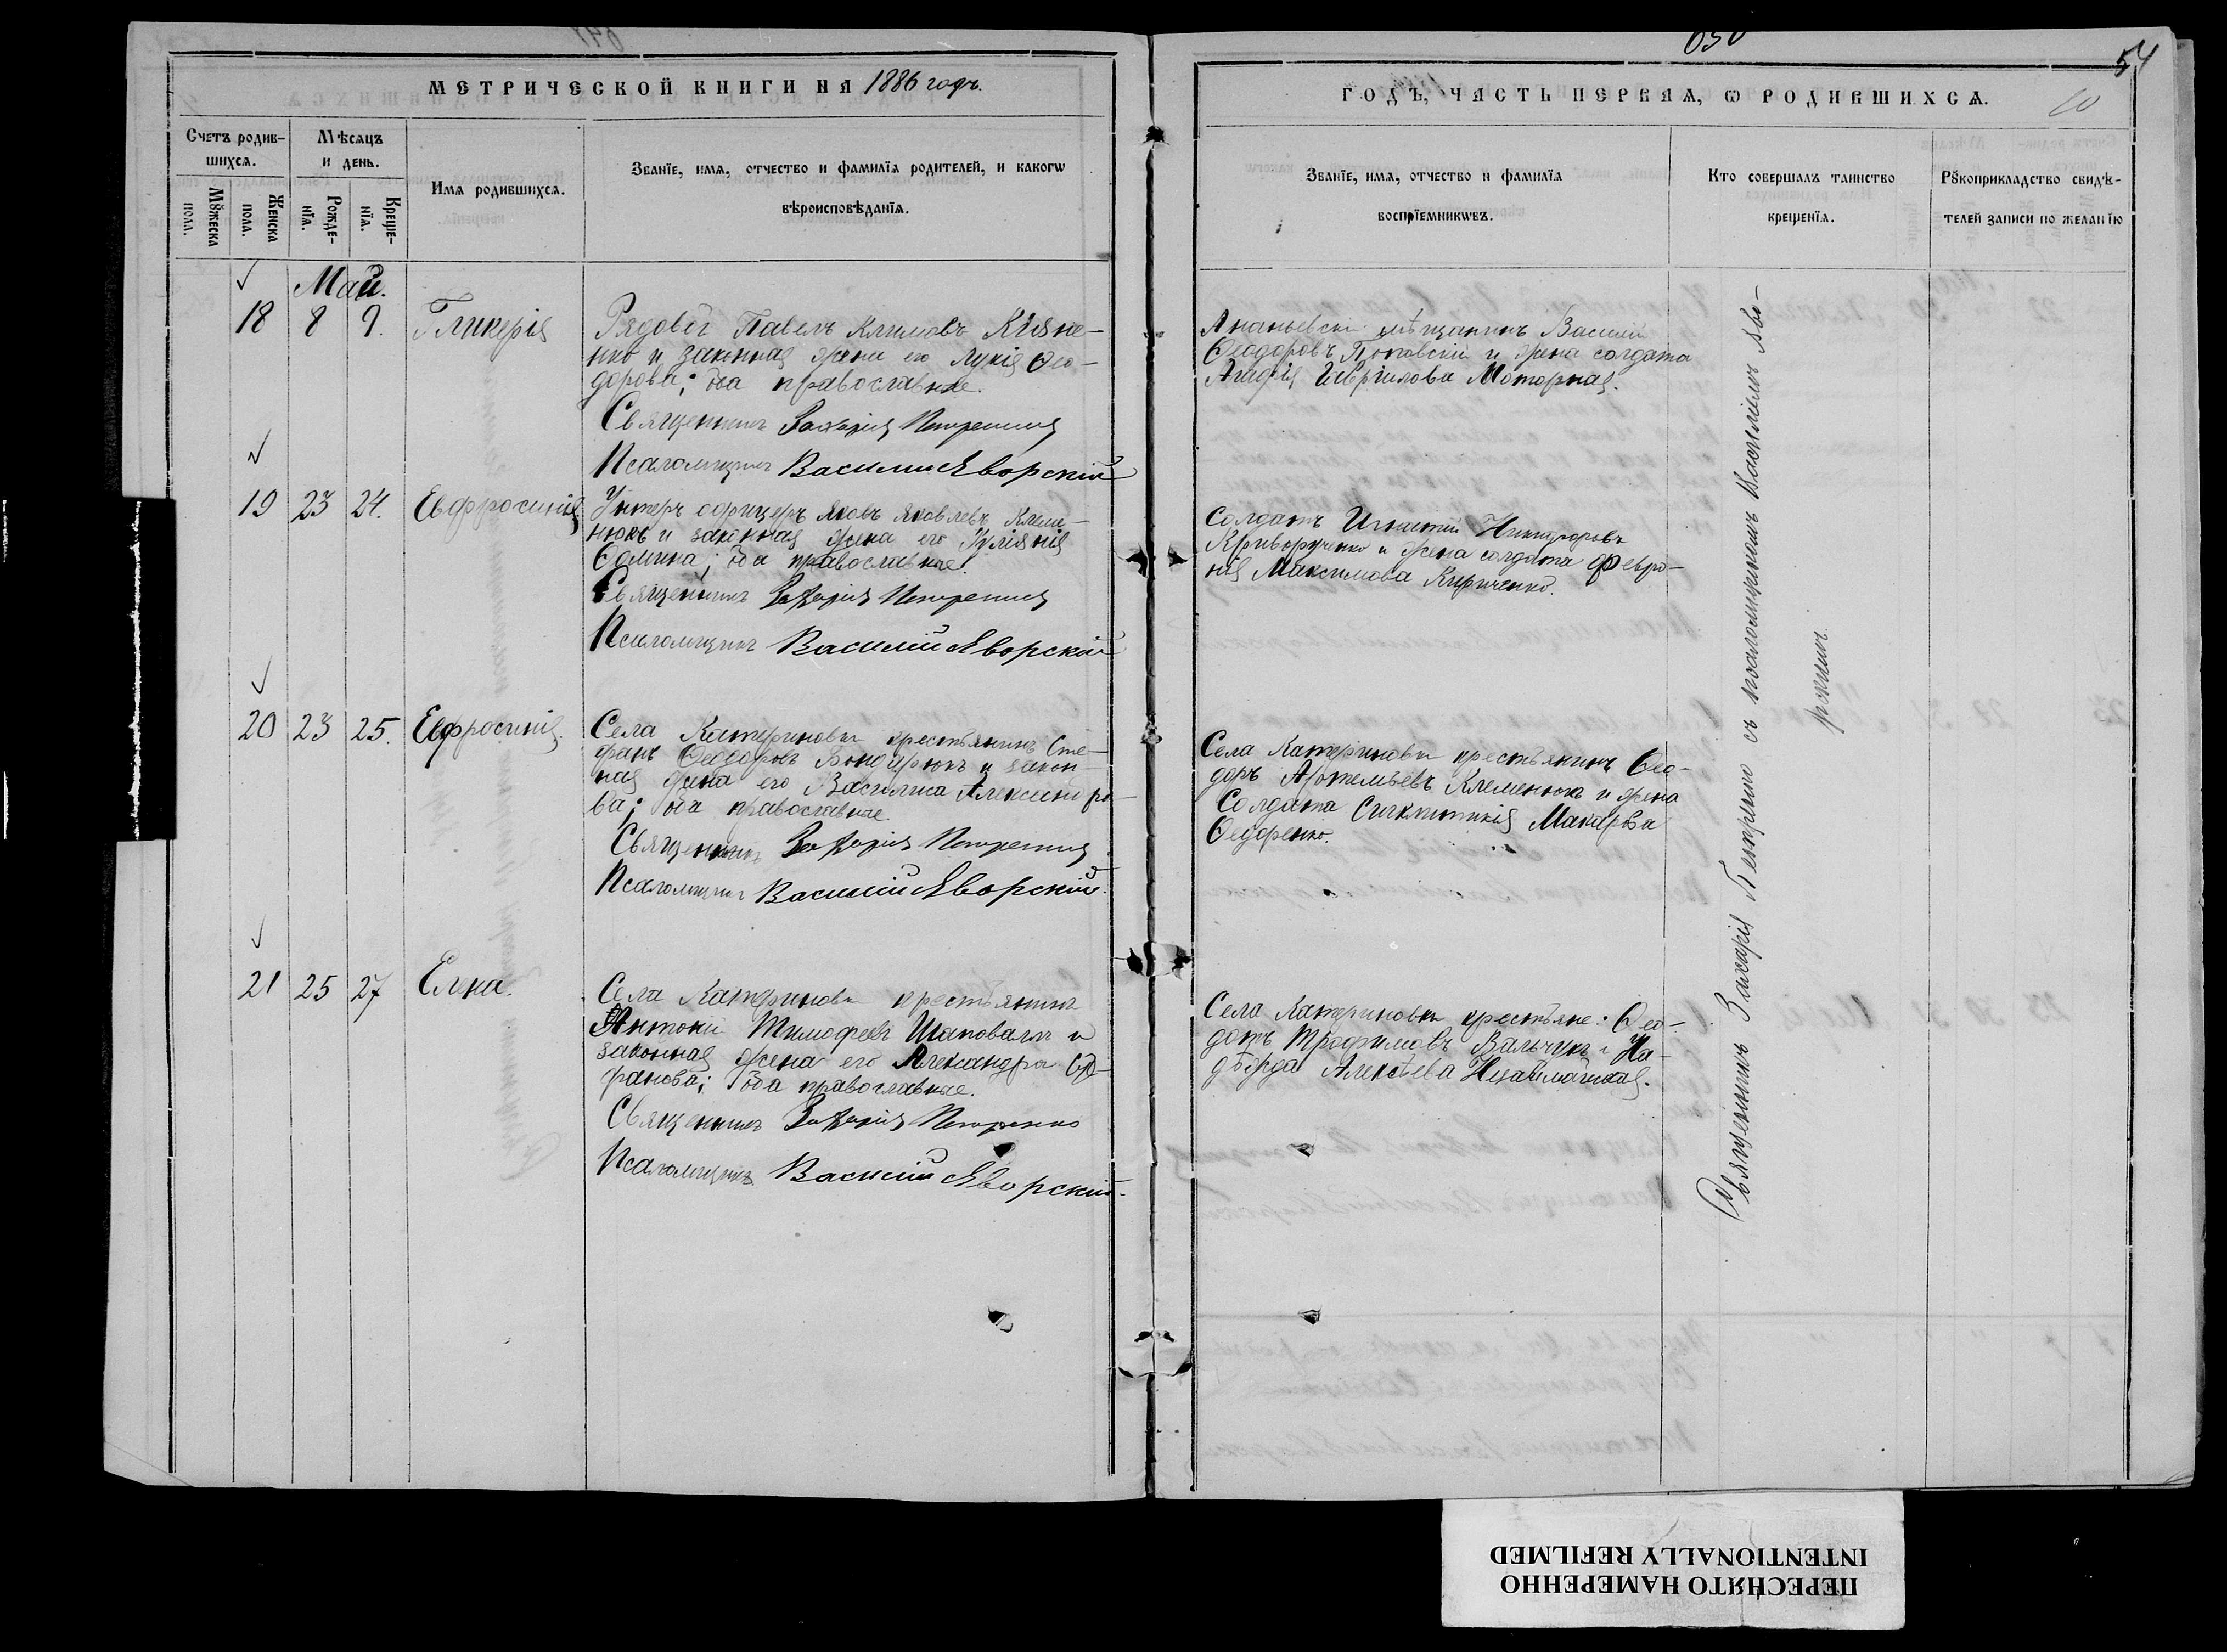 МЕТРИЧЕСКОЙ КНИГИ НА 1886 годъ.
Счетъ родив-
шихсѧ.
Мꙋжеска
пола.
Женска
пола.
Мѣсѧцъ
и день.
Рожде-
нїѧ.
Креще-
нїѧ.
Имѧ родившихсѧ.
Званїе, имѧ, отчество и фамилїѧ родителей, и какогѡ
вѣроисповѣданїѧ.
Май.
18 8 9. Гликерія
Рядовой Павелъ Климовъ Княже-
нко и законная жена его Лукія Ѳео-
дорова; оба православные.
Священникъ Захарія Петренко
Псаломщикъ Василій Яворскій
19 23 24. Евфросинія
Унтеръ офицеръ Яковъ Яковлевъ Клеме-
нюкъ и законная жена его Іуліанія
Ѳомина; оба православные.
Священникъ Захарія Петренко
Псаломщикъ Василій Яворскій
20 23 25. Евфросинія.
Села Катериновки крестьянинъ Сте-
фанъ Ѳеодоровъ Бондарюкъ и закон-
ная жена его Василиса Александро-
ва; оба православные.
Священникъ Захарія Петренко
Псаломщикъ Василій Яворскій.
21 25 27 Елена.
Села Катериновки крестьянинъ
Антоній Тимофеевъ Шаповалъ и
законная жена его Александра
фанова; оба православные.
Священникъ Захарія Петренко
Псаломщикъ Василій Яворскій.
650
54
10
ГОДЪ, ЧАСТЬ ПЕРВАѦ, Ѡ РОДИВШИХСѦ.
Званїе, имѧ, отчество и фамилїѧ
воспрїемникѡвъ.
Кто совершалъ таинство
крещенїѧ.
Рꙋкоприкладство свидѣ-
телей записи по желанїю
Ананьевскій мѣщанинъ Василій
Ѳеодоровъ Поповскій и жена солдата
Агафія Гавріилова Моторная.
Солдатъ Игнатій Никифоровъ
Криворученко и жена солдата Февро-
нія Максимова Кириченко.
Села Катериновки крестьянинъ Ѳео-
доръ Артемьевъ Клеменюкъ и жена
солдата Синклитикія Макарова
Ѳедоренко.
Села Катериновки крестьяне: Ѳео-
дотъ Трофимовъ Вальчукъ и На-
дежда Алексѣева
Священникъ Захарія Петренко съ псаломщикомъ Василіемъ Яво-
рскимъ.
ПЕРЕСНЯТО НАМЕРЕННО
INTENTIONALLY REFILMED